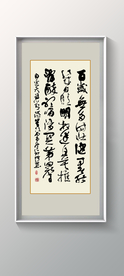 百歲無多時壯健一春
能幾日晴明相逢且莫推
辭醉聽唱陽關第四聲
白居易